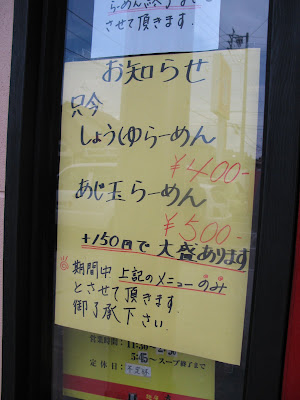 らーめん終了まで
させて頂きます.
お知らせ
只今
しょうゆらーめん
¥400-
あじ玉らーめん
¥500-
+150円で大盛あります
期間中上記のメニューのみ
とさせて頂きます.
御了承下さい.
営業時間:11:30～
スープ終了まで
定休日:不定休